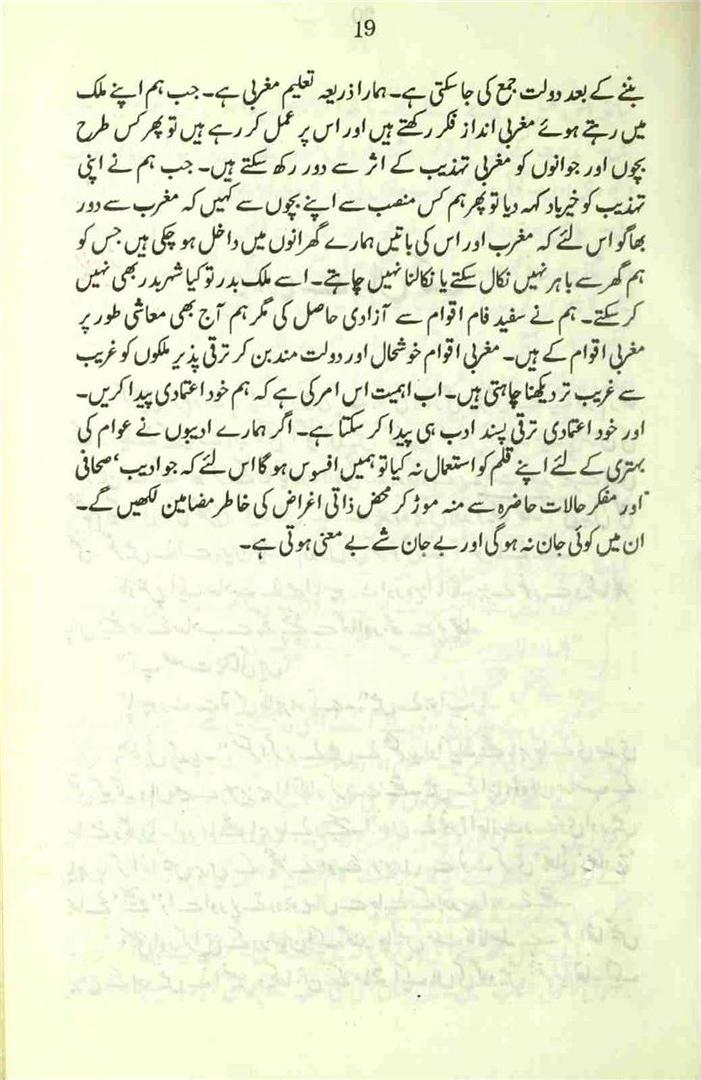 19
بننے کے بعد دولت جمع کی جا سکتی ہے۔ ہمارا ذریعہ تعلیم مغربی ہے۔ جب ہم اپنے ملک
میں رہتے ہوئے مغربی انداز فکر رکھتے ہیں اور اس پر عمل کر رہے ہیں تو پھر کس طرح
بچوں اور جوانوں کو مغربی تہذیب کے اثر سے دور رکھ سکتے ہیں۔ جب ہم نے اپنی
تہذیب کو خیرباد کہہ دیا تو پھر ہم کس منصب سے اپنے بچوں سے کہیں کہ مغرب سے دور
بھاگو اس لئے کہ مغرب اور اس کی باتیں ہمارے گھرانوں میں داخل ہو چکی ہیں جس کو
ہم گھر سے باہر نہیں نکال سکتے یا نکالنا نہیں چاہتے۔ اسے ملک بدر تو کیا شہر بدر بھی نہیں
کر سکتے۔ ہم نے سفید فام اقوام سے آزادی حاصل کی مگر ہم آج بھی معاشی طور پر
مغربی اقوام کے ہیں۔ مغربی اقوام خوشحال اور دولت مند بن کر ترقی پذیر ملکوں کو غریب
سے غریب تر دیکھنا چاہتی ہیں۔ اب اہمیت اس امر کی ہے کہ ہم خود اعتمادی پیدا کریں۔
اور خود اعتمادی ترقی پسند ادب ہی پیدا کر سکتا ہے۔ اگر ہمارے ادیبوں نے عوام کی
بہتری کے لئے اپنے قلم کو استعمال نہ کیا تو ہمیں افسوس ہو گا اس لئے کہ جو ادیب‘ صحافی
اور مفکر حالات حاضرہ سے منہ موڑ کر محض ذاتی اغراض کی خاطر مضامین لکھیں گے۔
ان میں کوئی جان نہ ہو گی اور بے جان شے بے معنی ہوتی ہے۔